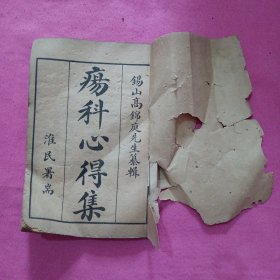 錫山高錦庭先生纂輯
瘍科心得集
淮民署耑